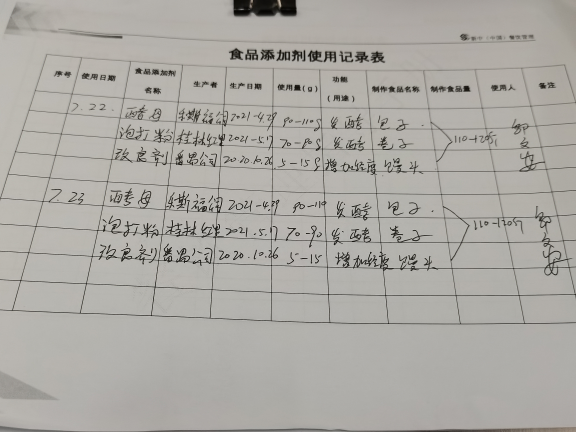 食品添加剂使用记录表
序号 使用日期 食品添加剂名称 生产者 生产日期 使用量(g) 功能(用途) 制作食品名称 制作食品量 使用人 备注
7.22. 酵母 2021-4.29 90-110g 发酵 包子.
泡打粉 桂林红星 2021-5.17 70-90g 发酵 卷子 110-120斤
改良剂 番禺公司 2020.10.26 5-15g 增加轻度 馒头
7.23 酵母 2021-4.29 90-110 发酵 包子.
泡打粉 桂林红星 2021.5.17 70-90 发酵 卷子 110-120斤
改良剂 番禺公司 2020.10.26 5-15 增加轻度 馒头